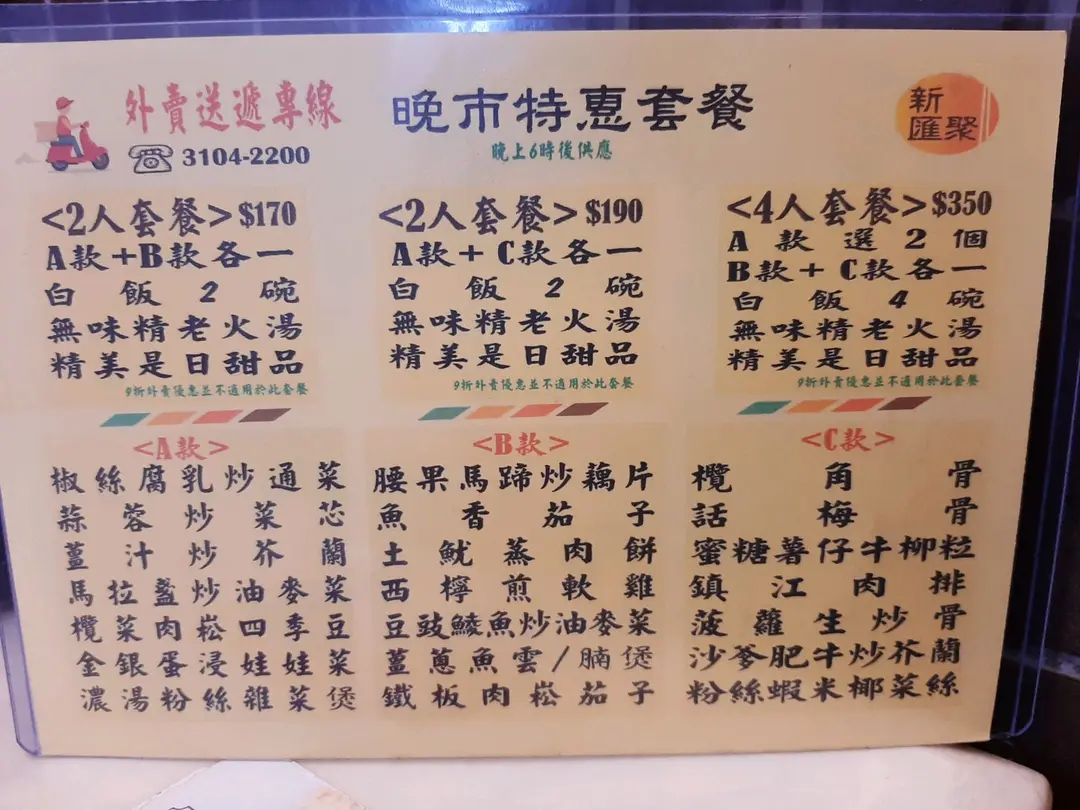 外賣送遞專線
3104-2200
晚市特惠套餐
晚上6時後供應
新
匯聚
<2人套餐> $170
A款+B款各一
白飯2碗
無味精老火湯
精美是日甜品
9折外賣優惠並不適用於此套餐
<2人套餐> $190
A款+C款各一
白飯2碗
無味精老火湯
精美是日甜品
9折外賣優惠並不適用於此套餐
<4人套餐> $350
A款選2個
B款+C款各一
白飯4碗
無味精老火湯
精美是日甜品
9折外賣優惠並不適用於此套餐
<A款>
椒絲腐乳炒通菜
蒜蓉炒菜芯
薑汁炒芥蘭
馬拉盞炒油麥菜
欖菜肉崧四季豆
金銀蛋浸娃娃菜
濃湯粉絲雜菜煲
<B款>
腰果馬蹄炒藕片
魚香茄子
土魷蒸肉餅
西檸煎軟雞
豆豉鯪魚炒油麥菜
薑蔥魚雲/腩煲
鐵板肉崧茄子
<C款>
欖角骨
話梅骨
蜜糖薯仔牛柳粒
鎮江肉排
菠蘿生炒骨
沙爹肥牛炒芥蘭
粉絲蝦米椰菜絲